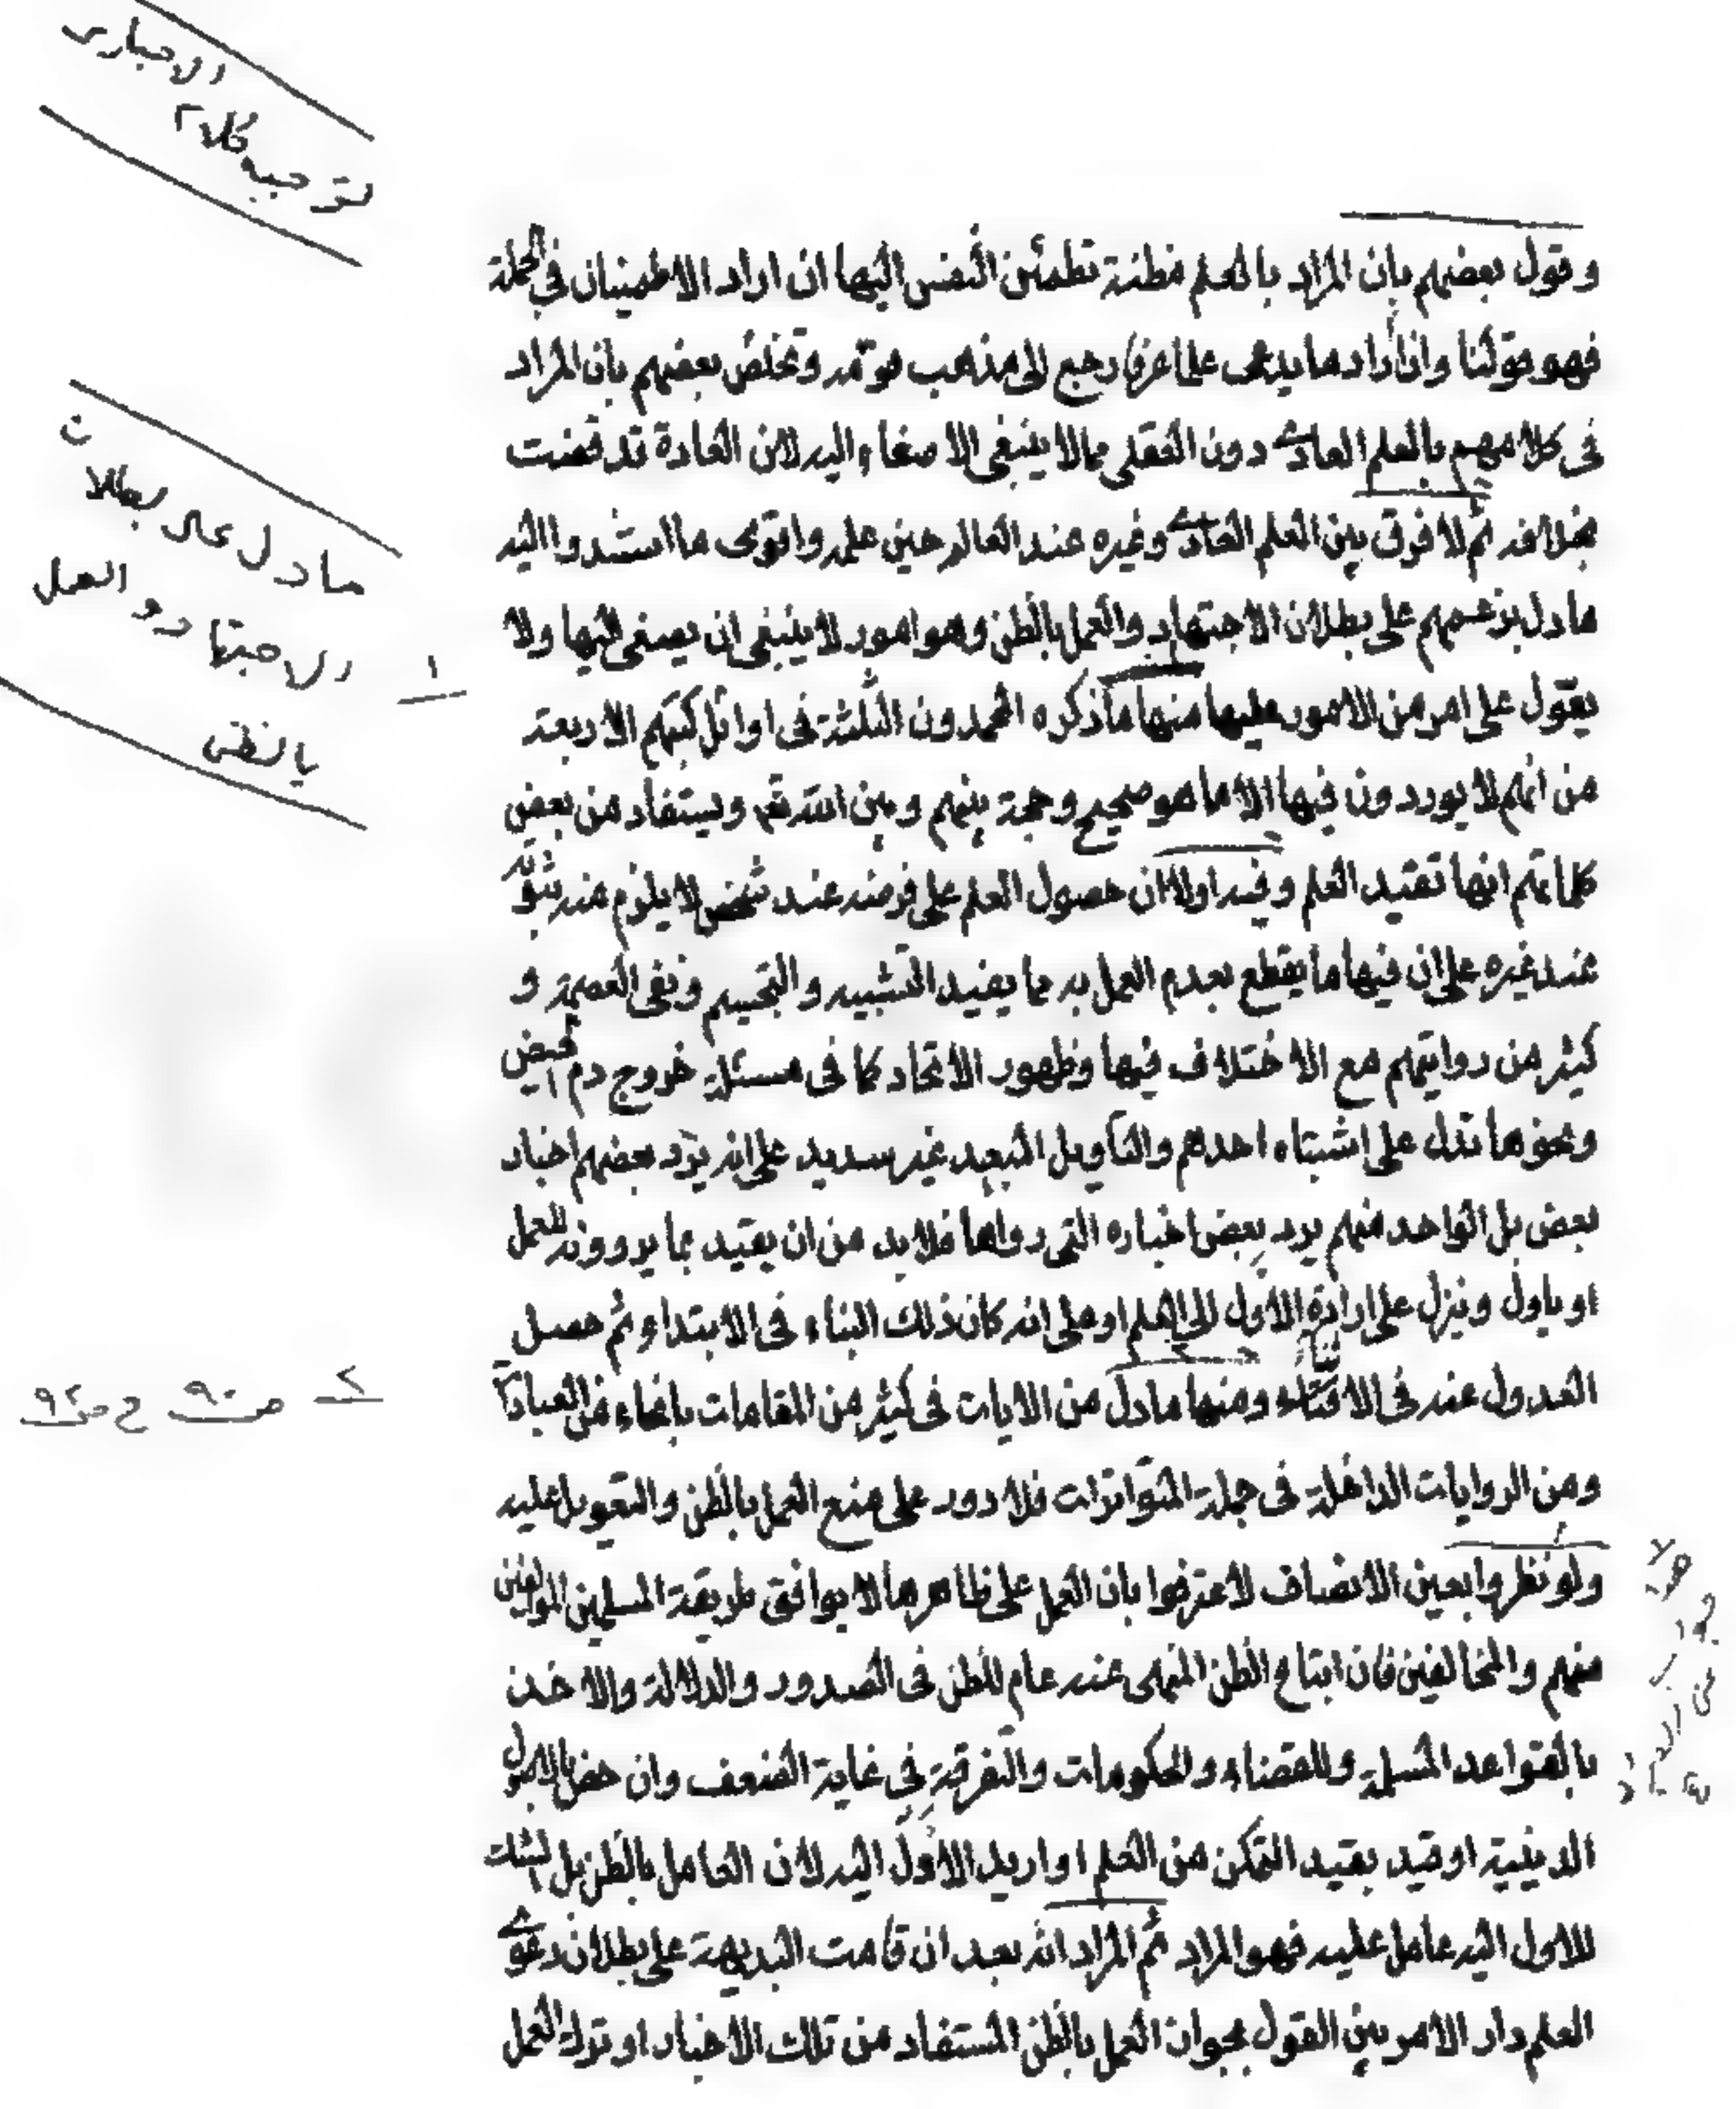 الاخباری
توجیه کلام
وقول بعضهم بان المراد بالعلم مظنة تطمئن النفس اليها ان اراد الاطمينان في الجملة
فهو قولنا وان اراد ما يدعى علما عرفا رجع الى مذهب قومه وتخلص بعضهم بان المراد
في كلامهم بالعلم العادى دون العقلى مما لا ينبغى الاصغاء اليه لان العادة قد قضت
بخلافه ثم لا فرق بين العلم العادى وغيره عند العالم حين علمه واقوى ما استندوا اليه
مادل على بطلان
الاجتهاد و العمل
بالظن
ما دل بزعمهم على بطلان الاجتهاد والعمل بالظن وهو امور لا ينبغى ان يصغى اليها ولا
١
يعول على امر من الامور عليها منها ما ذكره المحمدون الثلثة فى اوائل كتبهم الاربعة
من انهم لا يوردون فيها الا ما هو صحيح وحجة بينهم وبين الله تعم ويستفاد من بعض
كلماتهم انها تفيد العلم وفيه اولا ان حصول العلم على فرضه عند شخص لا يلزم منه ثبوته
عند غيره على ان فيها ما يقطع بعدم العمل به مما يفيد التشبيه والتجسيم ونفى العصمة و
كثير من روايتهم مع الاختلاف فيها وظهور الاتحاد كما فى مسئلة خروج دم الحيض
ونحوها تدل على اشتباه احدهم والتأويل البعيد غير سديد على انه يرد بعضهم اخبار
بعض بل الواحد منهم يرد بعض اخباره التى رواها فلا بد من ان يقيد بما يروونه للعمل
او ياول وينزل على ارادة الاول الى العلم او على انه كان ذلك البناء فى الابتداء ثم حصل
العدول عنه فى الاثناء ومنها ما دل من الايات فى كثير من المقامات بانحاء من العبارات
٢ ص ٩٠ ح ص ٩٢
ومن الروايات الداخلة فى جملة المتواترات فلا دور على منع العمل بالظن والتعويل عليه
ولو نظروا بعين الانصاف لاعترفوا بان العمل على ظاهرها لا يوافق طريقة المسلمين الموالفين
منهم والمخالفين فان اتباع الظن المنهى عنه عام للظن فى الصدور والدلالة والاخذ
بالقواعد المسلمة وللقضاء والحكومات والتفرقة فى غاية الضعف وان خص بالاصول
الدينية او قيد بقيد التمكن من العلم او اريد الاول اليه لان العامل بالظن بل الشك
للاول اليه عامل عليه فهو المراد ثم المراد انه بعد ان قامت البديهة على بطلان دعوى
العلم دار الامر بين القول بجواز العمل بالظن المستفاد من تلك الاخبار او ترك العمل